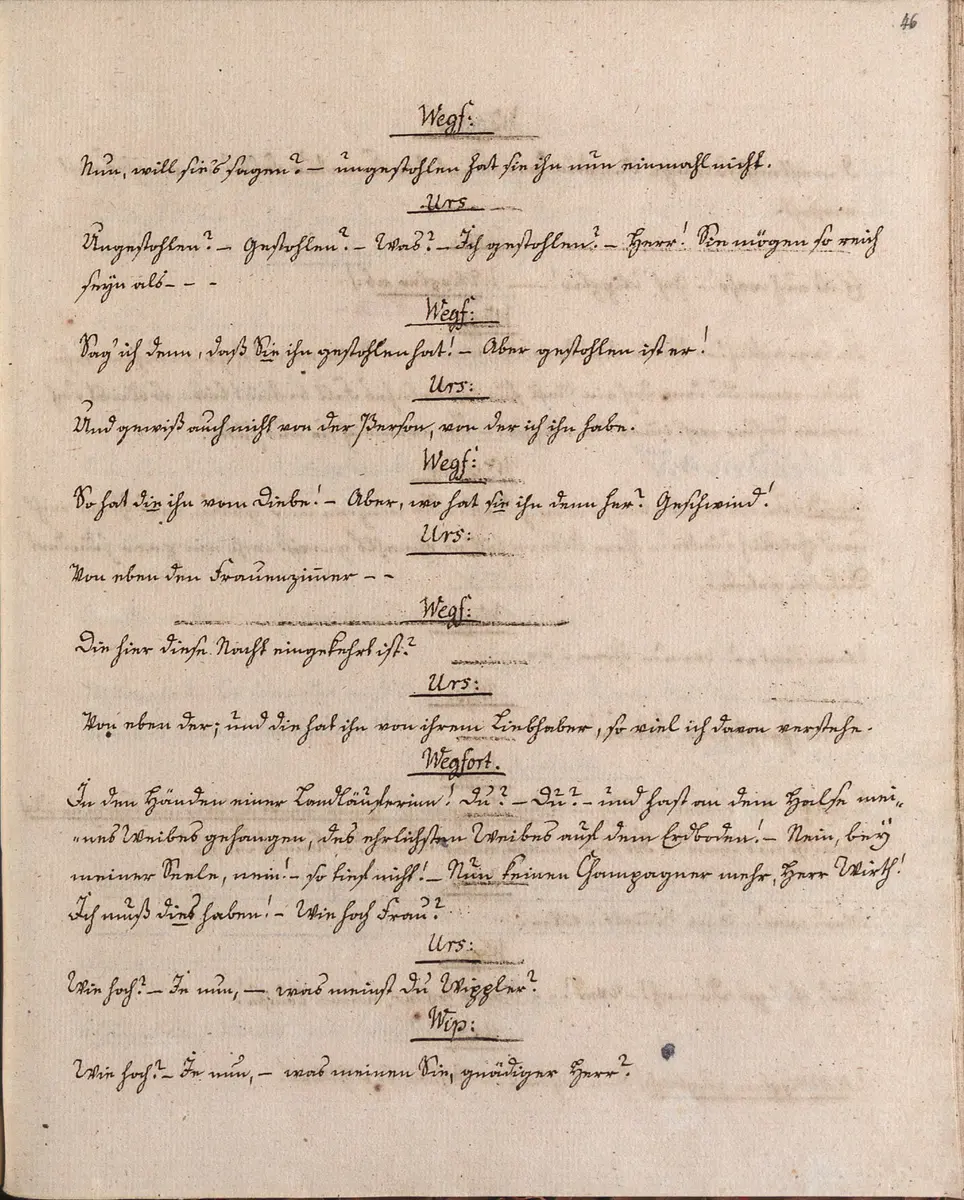 46
Wegf:
Nun, will sie's sagen? – ungestohlen hat sie ihn nun einmahl nicht.
Urs
Ungestohlen? – Gestohlen? – Was? – Ich gestohlen? – Herr! Sie mögen so reich
seyn als – – –
Wegf:
Sag' ich denn, daß Sie ihn gestohlen hat! – Aber gestohlen ist er!
Urs:
Und gewiß auch nicht von der Person, von der ich ihn habe.
Wegf:
So hat die ihn vom Diebe! – Aber, wo hat sie ihn denn her? Geschwind!
Urs:
Von eben den Frauenzim̅er – –
Wegf:
Die hier diese Nacht eingekehrt ist?
Urs:
Von eben der; und die hat ihn von ihrem Liebhaber, so viel ich davon verstehe.
Wegfort.
In den Händen einer Landläuferinn! Du? – Du? – und hast an dem Halse mei-
-nes Weibes gehangen, des ehrlichsten Weibes auf dem Erdboden! – Nein, bey
meiner Seele, nein! – so tief nicht! – Nun keinen Champagner mehr, Herr Wirth!
Ich muß dies haben! – Wie hoch Frau?
Urs:
Wie hoch? – Je nun, – was meinst du Wippler?
Wip:
Wie hoch? – Je nun, – was meinen Sie, gnädiger Herr?